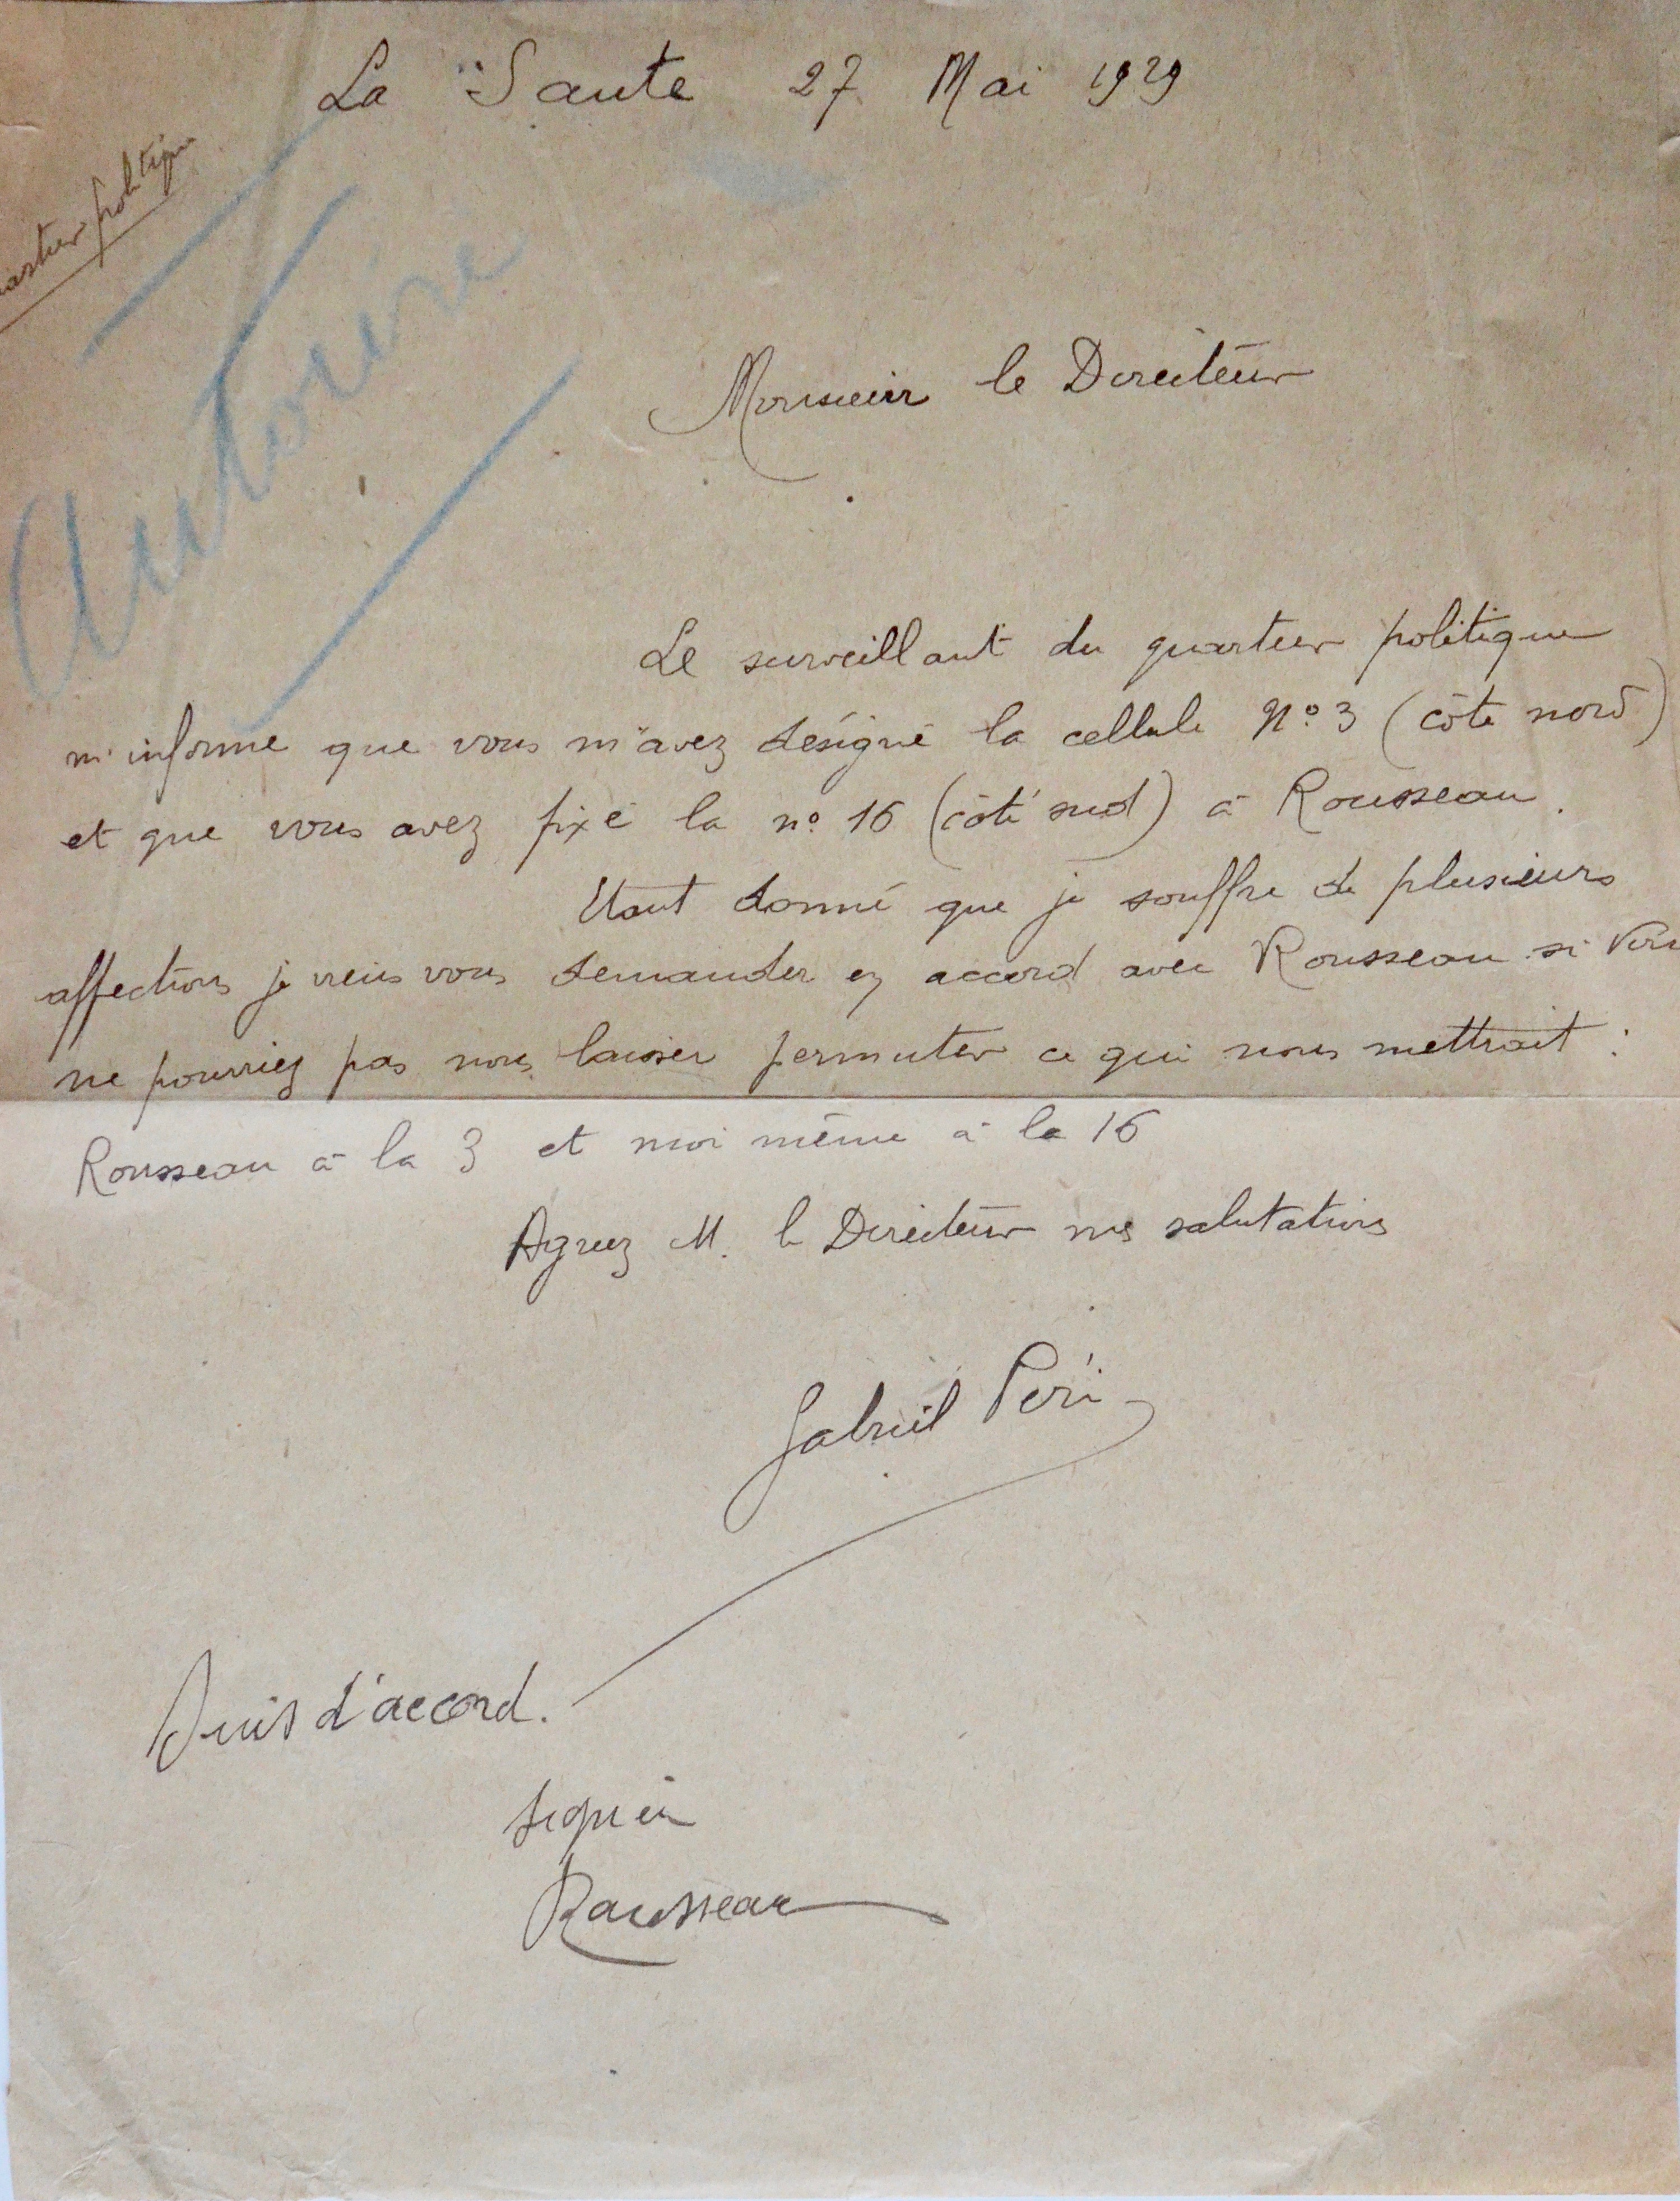 La Santé 27 Mai 1929
quartier politique
Autorisé
Monsieur le Directeur
Le surveillant du quartier politique
m'informe que vous m'avez désigné la cellule N° 3 (côté nord)
et que vous avez fixé la n° 16 (côté sud) à Rousseau.
Etant donné que je souffre de plusieurs
affections je viens vous demander en accord avec Rousseau si vous
ne pourriez pas nous laisser permuter ce qui nous mettrait :
Rousseau à la 3 et moi même à la 16
Agréez M. le Directeur mes salutations
Gabriel Péri
Suis d'accord.
Rousseau